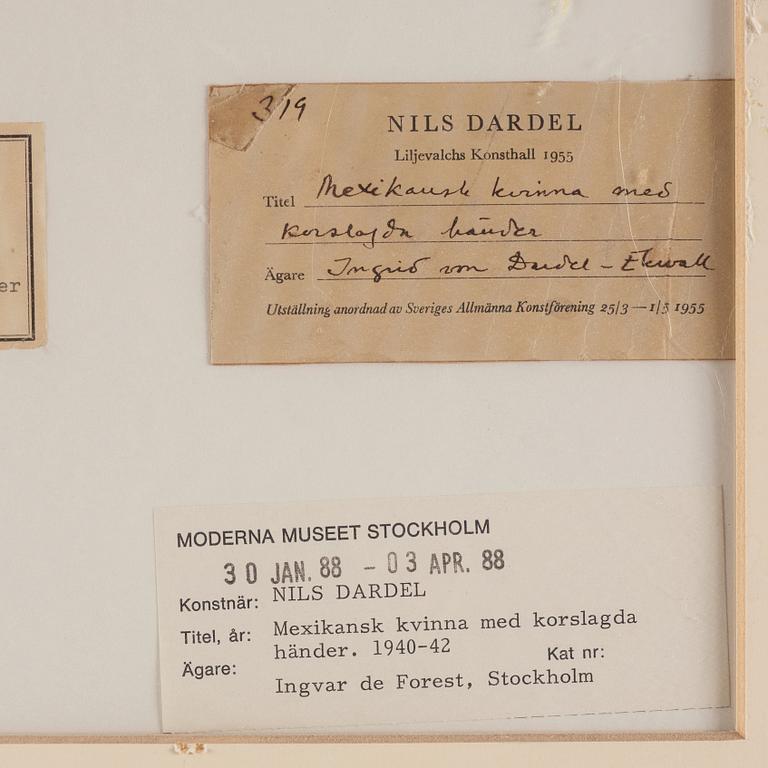 319
NILS DARDEL
Liljevalchs Konsthall 1955
Titel Mexikansk kvinna med
korslagda händer
Ägare Ingrid von Dardel - Ekwall
Utställning anordnad av Sveriges Allmänna Konstförening 25/3 — 1/5 1955
er
MODERNA MUSEET STOCKHOLM
30 JAN. 88 - 03 APR. 88
Konstnär: NILS DARDEL
Titel, år: Mexikansk kvinna med korslagda
händer. 1940-42 Kat nr:
Ägare: Ingvar de Forest, Stockholm